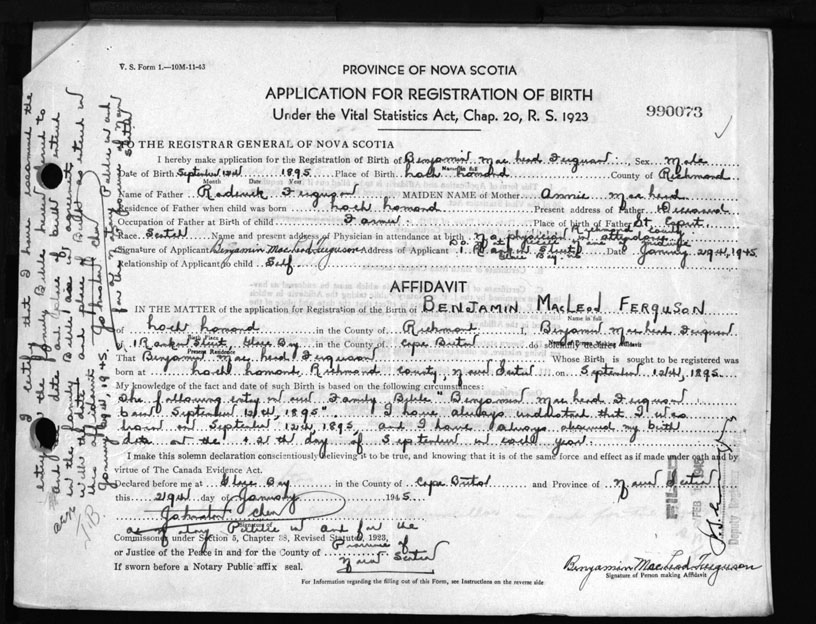 V. S. Form 1.—10M-11-43
PROVINCE OF NOVA SCOTIA
APPLICATION FOR REGISTRATION OF BIRTH
Under the Vital Statistics Act, Chap. 20, R. S. 1923
990073
TO THE REGISTRAR GENERAL OF NOVA SCOTIA
I hereby make application for the Registration of Birth of Benjamin Mac Lead Ferguson Sex Male
Name in full
Date of Birth September 12th 1895 Place of Birth Loch Lomond County of Richmond
Month Date Year
Name of Father Roderick Ferguson MAIDEN NAME of Mother Annie Mac Lead
Residence of Father when child was born Loch Lomond Present address of Father Deceased
Occupation of Father at Birth of child Farmer Place of birth of Father St.
Race Scotch Name and present address of Physician in attendance at birth No physician in attendance
Richmond County
Signature of Applicant Benjamin MacLead Ferguson Address of Applicant 1 Rankin Street Date January 29th, 1945
Glace Bay
Relationship of Applicant to child Self
AFFIDAVIT
IN THE MATTER of the application for Registration of the Birth of BENJAMIN MacLeod FERGUSON
Name in full
of Loch Lomond in the County of Richmond I, Benjamin Mac Lead Ferguson
Birth Place
1 Rankin Street, Glace Bay in the County of Cape Breton do solemnly declare
Present Residence
Name of Person Making Affidavit
That Benjamin Mac Lead Ferguson Whose Birth is sought to be registered was
born at Loch Lomond, Richmond County, Nova Scotia on September 12th, 1895
My knowledge of the fact and date of such Birth is based on the following circumstances:
The following entry in our Family Bible "Benjamin Mac Lead Ferguson
born September 12th, 1895". I have always understood that I was
born on September 12th, 1895, and I have always observed my birth
date on the 12th day of September in each year.
I make this solemn declaration conscientiously believing it to be true, and knowing that it is of the same force and effect as if made under oath and by
virtue of The Canada Evidence Act.
Declared before me at Glace Bay in the County of Cape Breton and Province of Nova Scotia
this 29th day of January 1945
a Notary Public in and for the
Commissoner under Section 5, Chapter 38, Revised Statutes, 1923, Province of
or Justice of the Peace in and for the County of Nova Scotia
If sworn before a Notary Public affix seal.
Benjamin MacLead Ferguson
Signature of Person making Affidavit
For Information regarding the filling out of this Form, see Instructions on the reverse side
FILED
FEB 1945
Deputy
I certify that I have examined the
entry in the family Bible herein referred to
and the date and place of birth entered
in the family Bible as agreement
with the date and place of birth as entered in
this affidavit
January 29th, 1945.
a Notary Public in and
for the Province of Nova
Scotia